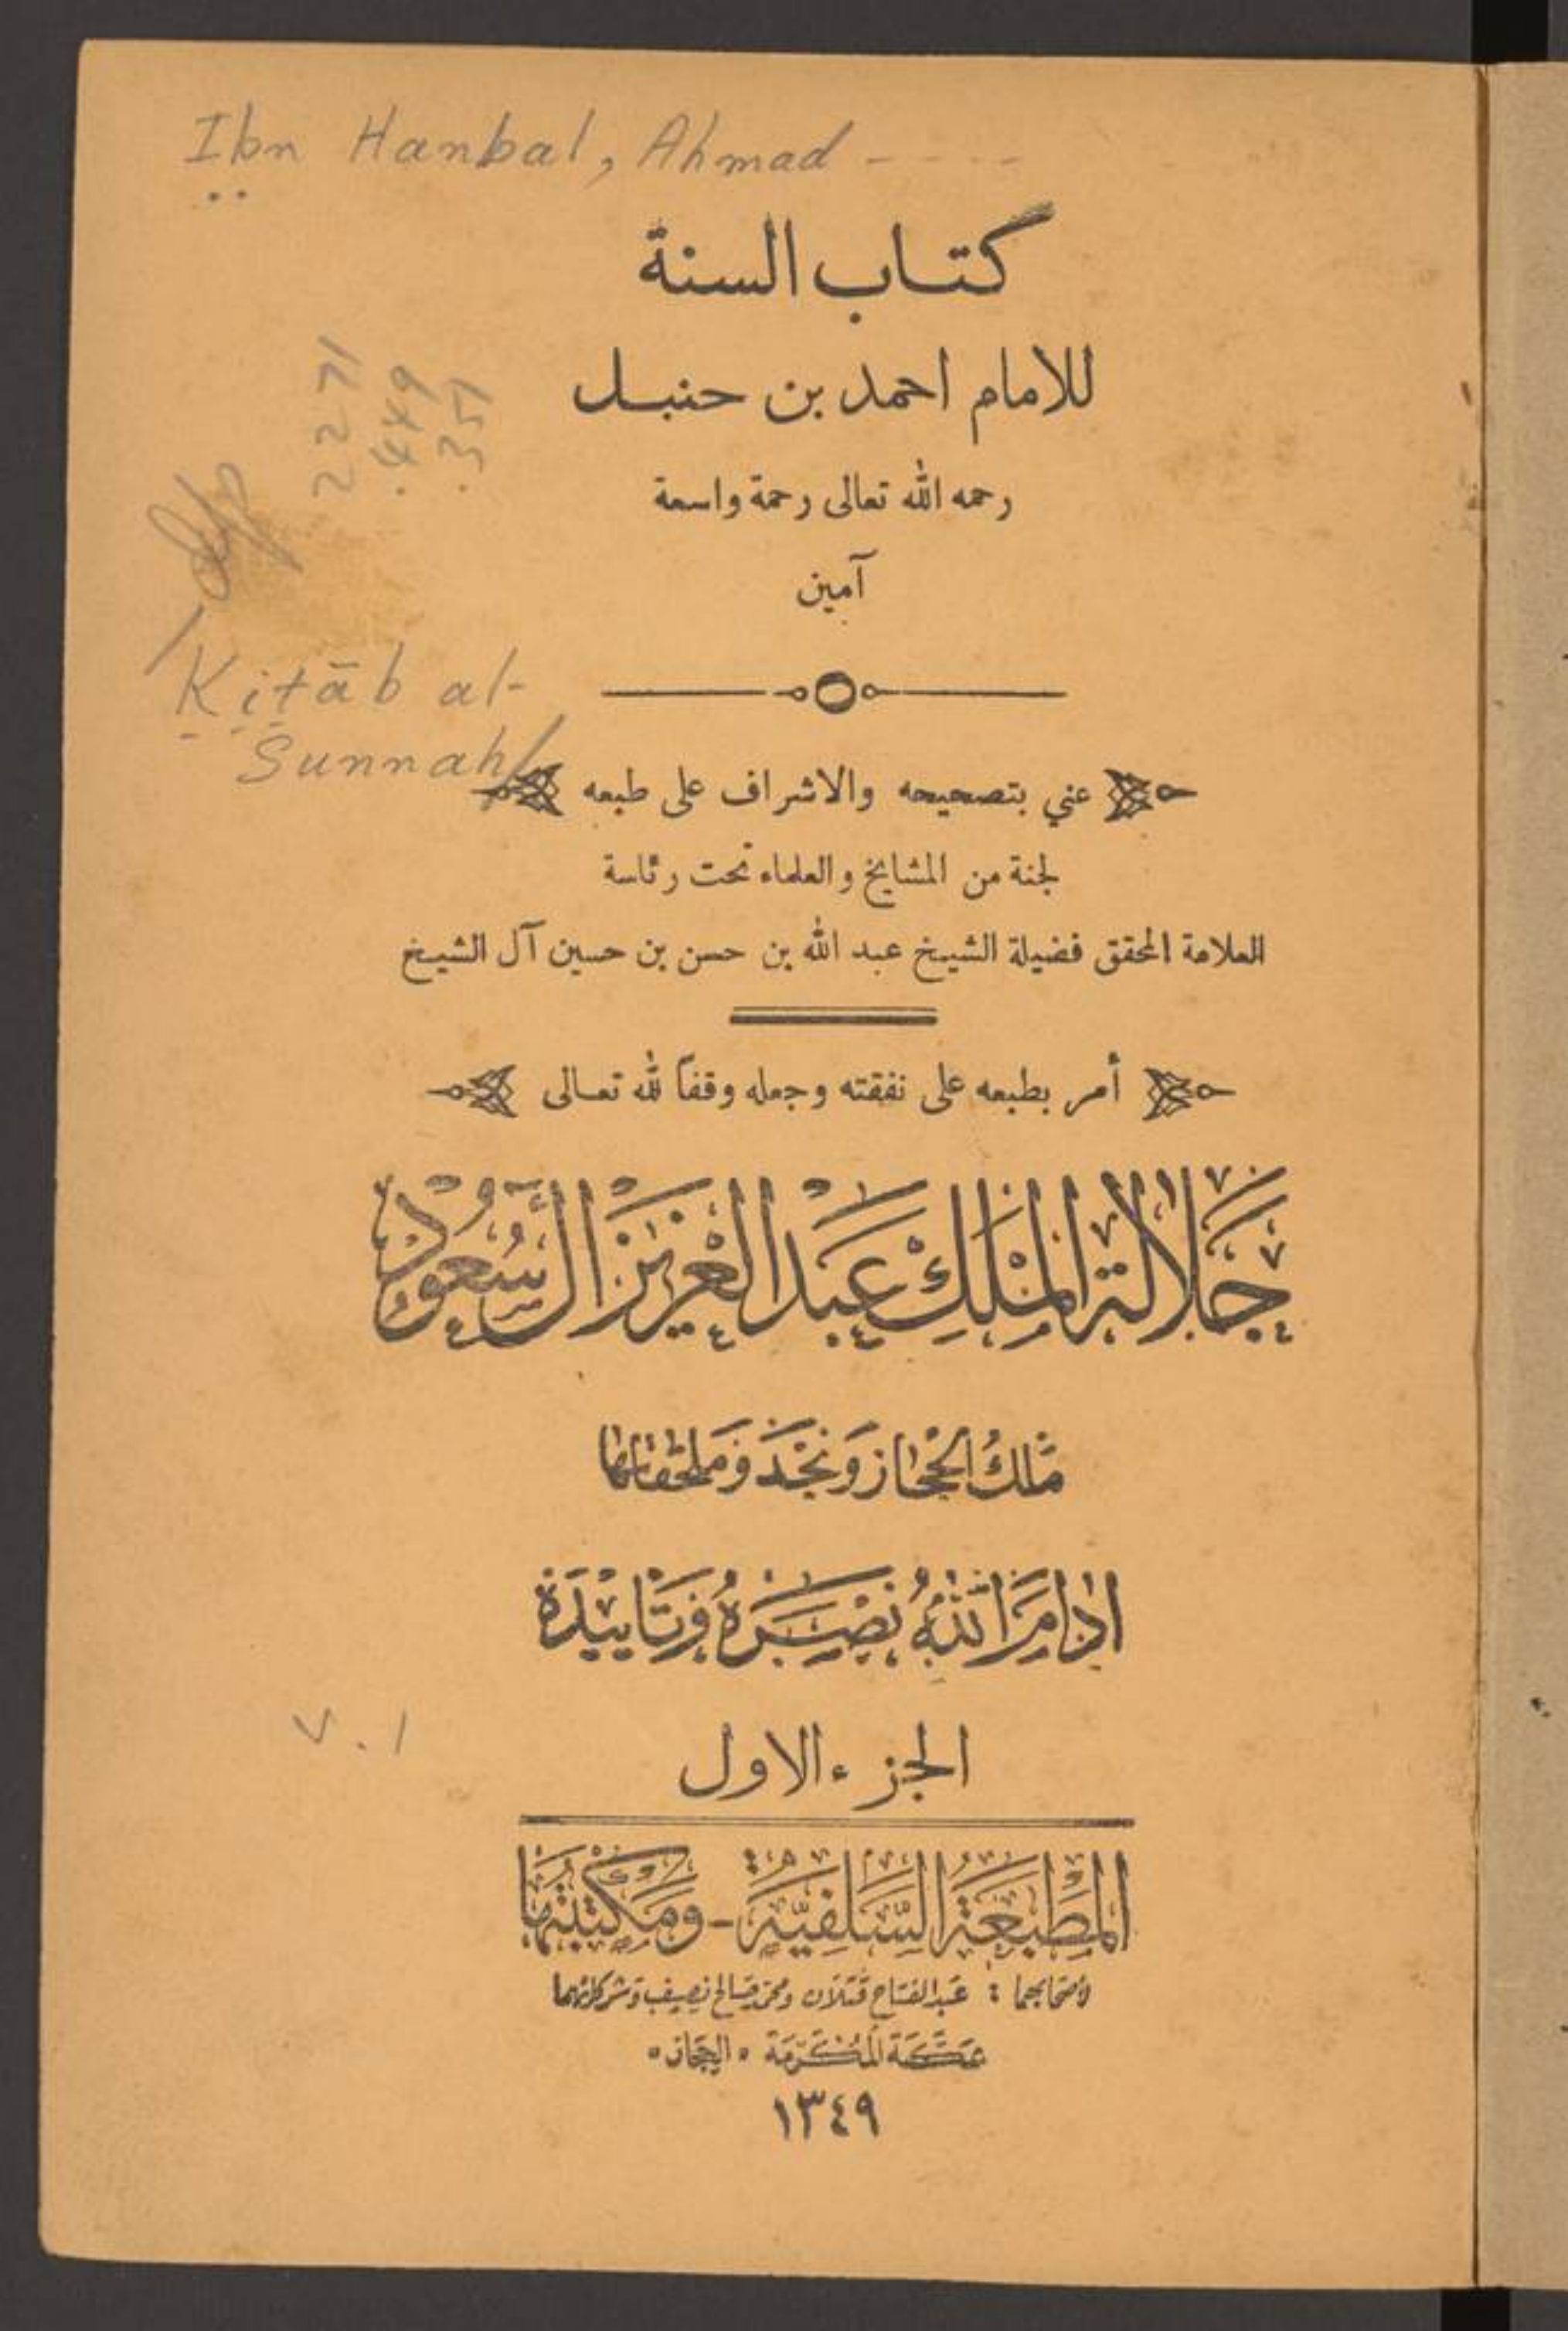 Ibn Hanbal, Ahmad - - - -
كتاب السنة
للامام احمد بن حنبل
رحمه الله تعالى رحمة واسعة
آمين
2271
.449
.351
Kitāb al-
Sunnah/
عني بتصحيحه والاشراف على طبعه
لجنة من المشايخ والعلماء تحت رئاسة
العلامة المحقق فضيلة الشيخ عبد الله بن حسن بن حسين آل الشيخ
أمر بطبعه على نفقته وجعله وقفاً لله تعالى
جَلالة المَلِك عَبد العَزيز آل سُعود
مَلك الحجَاز وَنجْد وَملحقاتها
ادَامَ اللهُ نَصْرَهُ وَتَاييْدَهُ
v. 1
الجزء الاول
المَطبَعَة السَّلَفِيَّة - وَمَكتَبَتها
لأصحَابهما : عَبد الفتاح قتلان ومحمّد صَالح نصيف وَشركائهما
بمَكَّة المُكَرَّمَة «الحِجَاز»
١٣٤٩